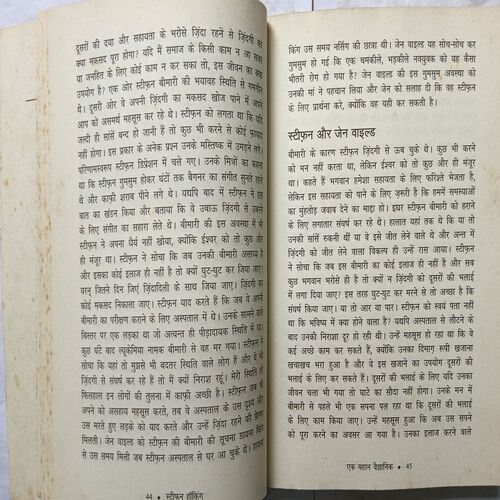 दूसरों की दया और सहायता के भरोसे ज़िंदा रहने से ज़िंदगी का
क्या मकसद पूरा होगा? यदि मैं समाज के किसी काम न आ सका
या जनहित के लिए कोई काम न कर सका तो, इस जीवन का क्या
उपयोग है? एक ओर स्टीफ़न बीमारी की भयावह स्थिति से ग्रसित
थे। दूसरी ओर वे अपनी ज़िंदगी का मकसद खोज पाने में अपने
आप को असमर्थ महसूस कर रहे थे। स्टीफ़न को लगता था कि यदि
जल्दी ही सांसें बन्द हो जानी हैं तो कुछ भी करने से कोई फ़ायदा
नहीं होगा। इस प्रकार के अनेक प्रश्न उनके मस्तिष्क में उमड़ने लगे।
परिणामस्वरूप स्टीफ़न डिप्रेशन में चले गए। उनके मित्रों का कहना
था कि स्टीफ़न गुमसुम होकर घंटों तक वैगनर का संगीत सुनते रहते
थे और काफी शराब पीने लगे थे। यद्यपि बाद में स्टीफ़न ने इस
बात का खंडन किया और बताया कि वे उबाऊ ज़िंदगी से उबरने
के लिए संगीत का सहारा लेते थे। बीमारी की इस अवस्था में भी
स्टीफ़न ने अपना धैर्य नहीं खोया, क्योंकि ईश्वर को तो कुछ और
ही मंजूर था। स्टीफ़न ने सोचा कि जब उनकी बीमारी असाध्य है
और इसका कोई इलाज ही नहीं है तो क्यों घुट-घुट कर जिया जाए!
वरन् जितने दिन जिएं ज़िंदादिली के साथ जिया जाए। ज़िंदगी का
कोई मकसद निकाला जाए। स्टीफ़न याद करते हैं कि जब वे अपनी
बीमारी का परीक्षण कराने के लिए अस्पताल में थे। उनके सामने वाले
बिस्तर पर एक लड़का था जो अत्यन्त ही पीड़ादायक स्थिति में था।
कुछ घंटे बाद ल्यूकेमिया नामक बीमारी से वह मर गया। स्टीफ़न ने
सोचा कि यहां तो मुझसे भी बदतर स्थिति वाले लोग हैं और वे भी
ज़िंदगी से संघर्ष कर रहे हैं तो मैं क्यों निराश रहूं। मेरी स्थिति तो
फिलहाल इन लोगों की तुलना में काफी अच्छी है। स्टीफ़न जब भी
अपने को असहाय महसूस करते, तब वे अस्पताल के उस दृश्य और
उस मरते हुए लड़के को याद करते और उन्हें ज़िंदा रहने की प्रेरणा
मिलती। जेन वाइल्ड को स्टीफ़न की बीमारी की सूचना डायना किंग
से उस समय मिली जब स्टीफ़न अस्पताल से घर आ चुके थे। डायना
44 • स्टीफन हॉकिंग
किंग उस समय नर्सिंग की छात्रा थी। जेन वाइल्ड यह सोच-सोच कर
गुमसुम हो गई कि एक चमकीले, भड़कीले नवयुवक को यह कैसा
भीतरी रोग हो गया है? जेन वाइल्ड की इस गुमसुम अवस्था को
उनकी मां ने पहचान लिया और जेन को सलाह दी कि वह स्टीफ़न
के लिए प्रार्थना करे, क्योंकि वह यही कर सकती है।
स्टीफ़न और जेन वाइल्ड
बीमारी के कारण स्टीफ़न ज़िंदगी से ऊब चुके थे। कुछ भी करने
को मन नहीं करता था, लेकिन ईश्वर को तो कुछ और ही मंजूर
था। कहते हैं भगवान हमेशा सहायता के लिए फरिश्ते भेजता है,
लेकिन इस सहायता को पाने के लिए ज़रूरी है कि हममें समस्याओं
का मुंहतोड़ जवाब देने का माद्दा हो। इधर स्टीफ़न बीमारी को हराने
के लिए लगातार संघर्ष कर रहे थे। हालात यहां तक थे कि या तो
उनकी सांसें रुकनी थीं या वे इसे जीत लेने वाले थे और अन्त में
ज़िंदगी को जीत लेने वाला विकल्प ही उन्हें रास आया। स्टीफ़न
ने सोचा कि जब इस बीमारी का कोई इलाज ही नहीं है और सब
कुछ भगवान भरोसे ही है तो क्यों न ज़िंदगी को दूसरों की भलाई
में लगा दिया जाए? इस तरह घुट-घुट कर मरने से तो अच्छा है कि
संघर्ष किया जाए। या तो आर या पार। स्टीफ़न को स्वयं पता नहीं
था कि भविष्य में क्या होने वाला है? यद्यपि अस्पताल से लौटने के
बाद उनकी निराशा दूर हो रही थी। उन्हें महसूस हो रहा था कि वे
कई अच्छे काम कर सकते हैं, क्योंकि उनका दिमाग़ रूपी खजाना
खचाखच भरा हुआ है और वे इस खजाने का उपयोग दूसरों की
भलाई के लिए कर सकते हैं। दूसरों की भलाई के लिए यदि उनका
जीवन चला भी गया तो घाटे का सौदा नहीं होगा। उनके मन में
बीमारी से पहले भी एक सपना पल रहा था कि दूसरों की भलाई
के लिए काम किया जाए। उन्हें महसूस हुआ कि अब उस सपने
को पूरा करने का अवसर आ गया है। उनका इलाज करने वाले
एक महान वैज्ञानिक • 45